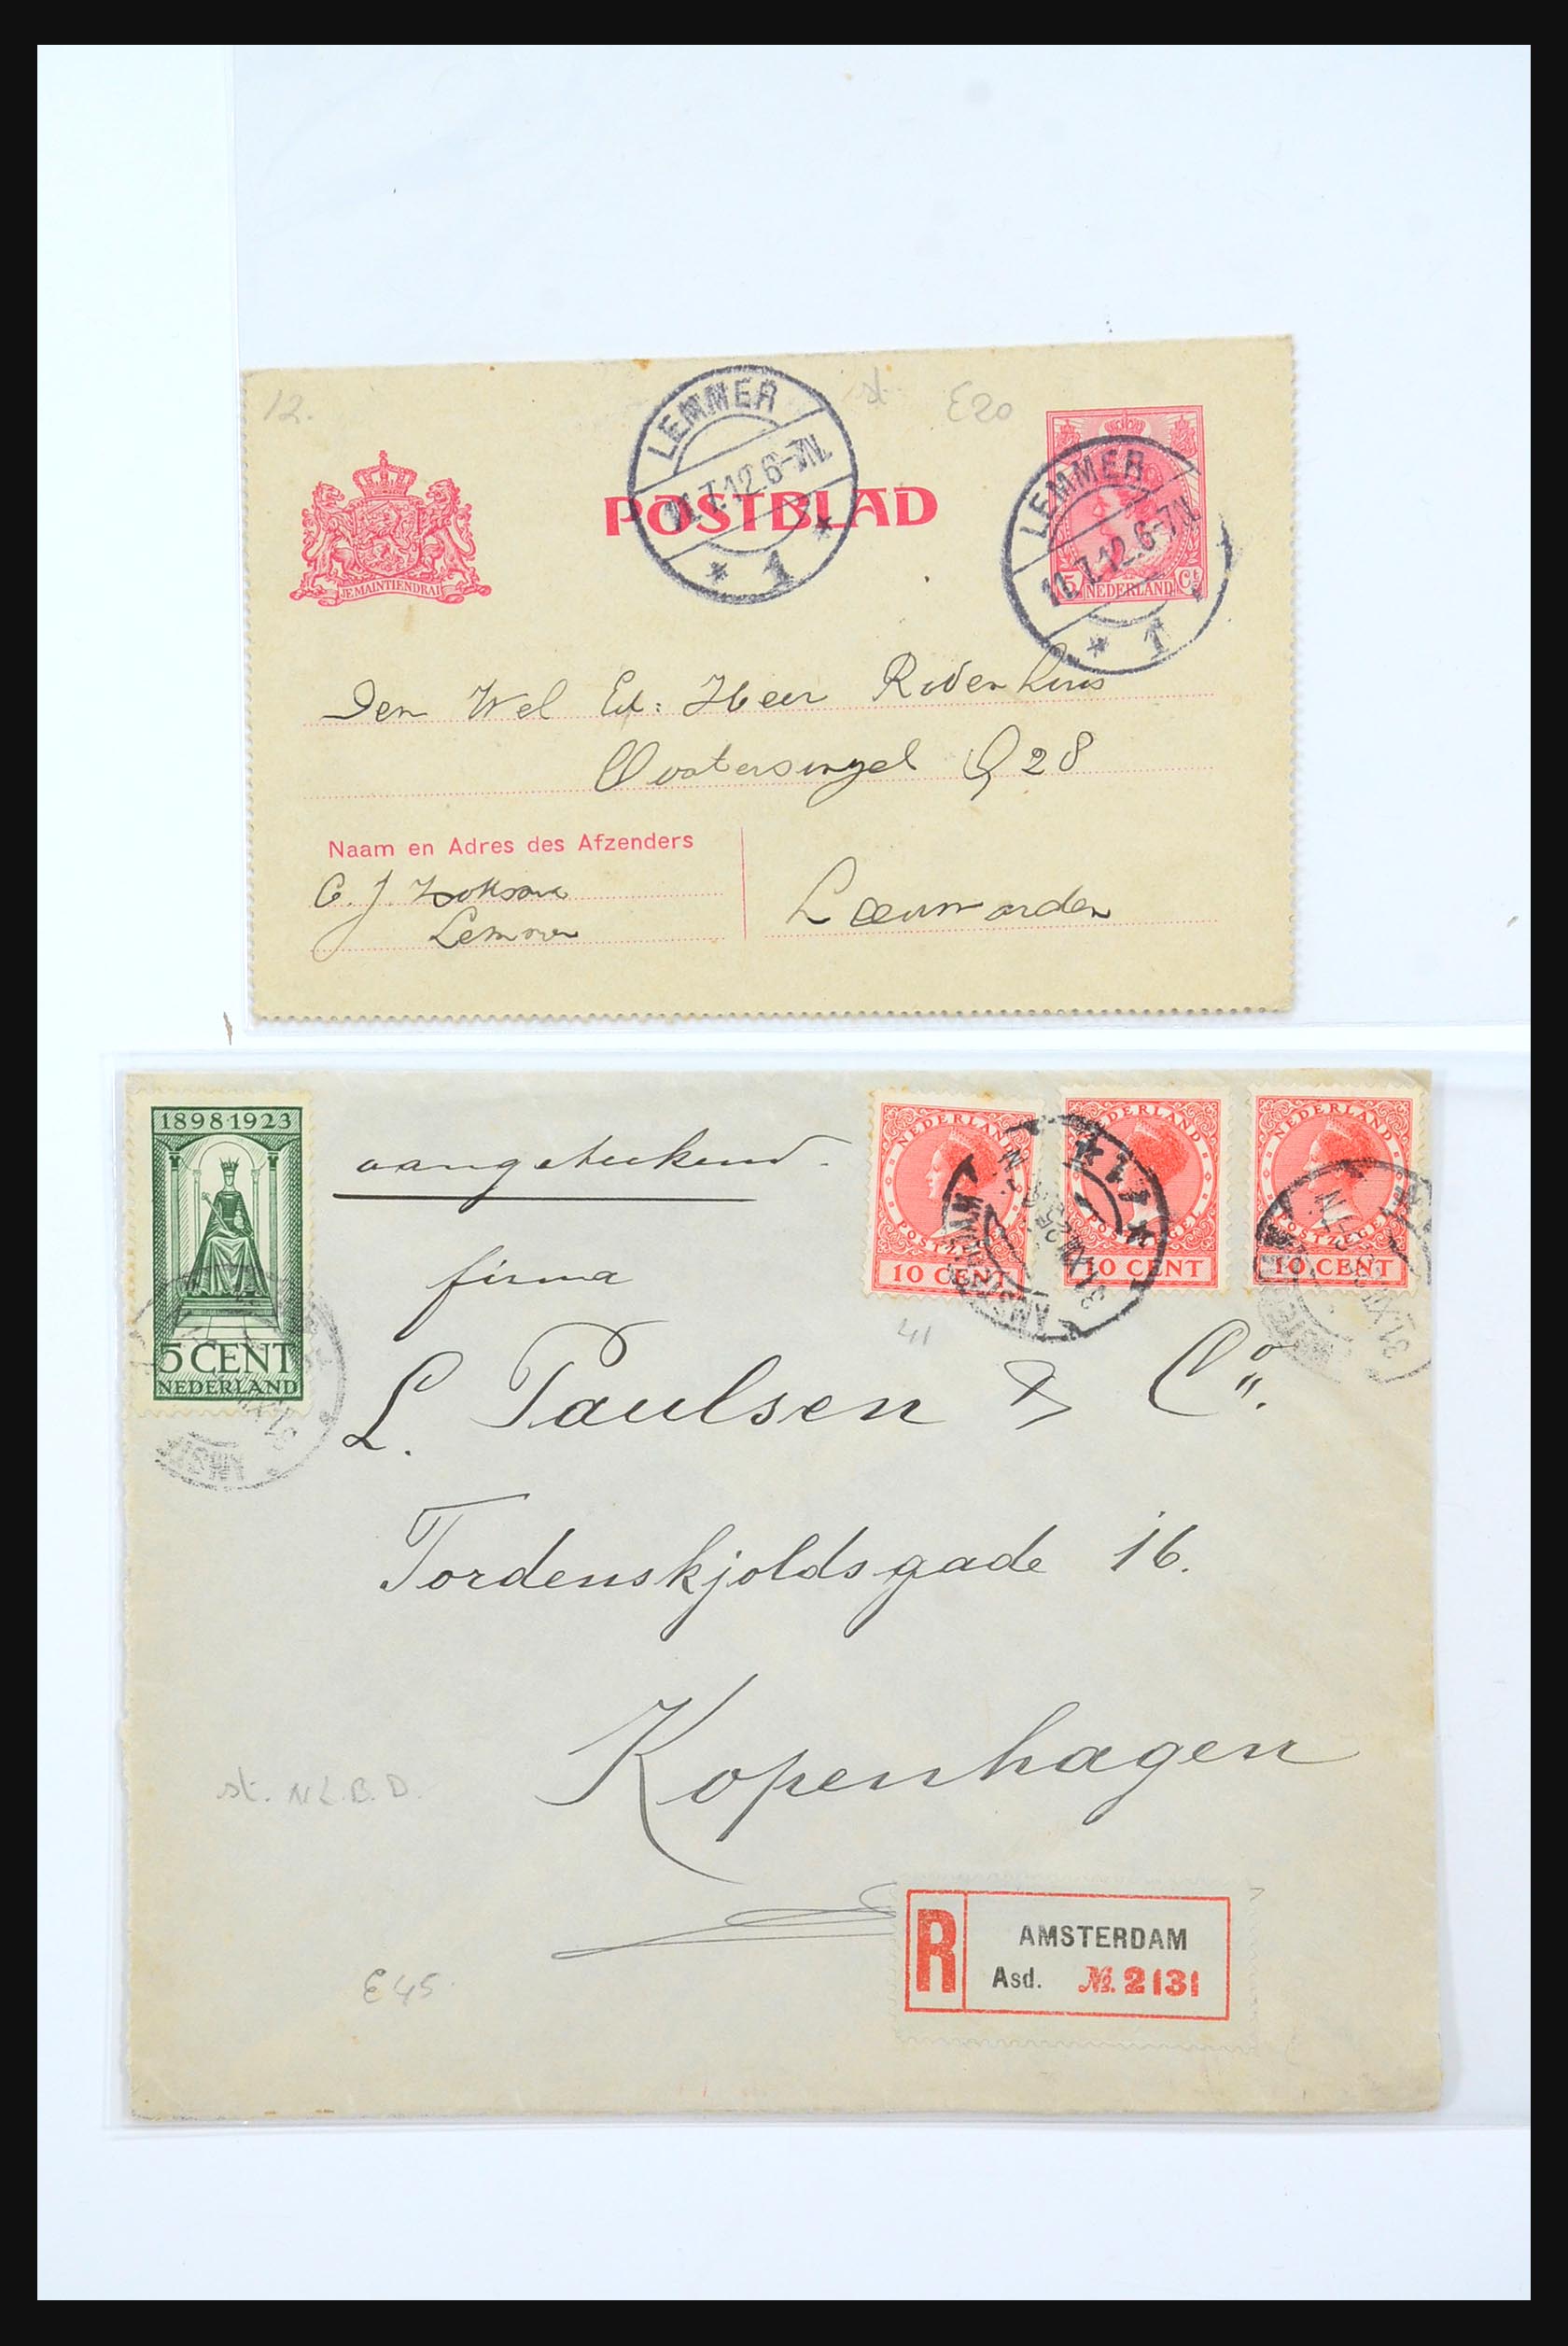 12.
st.
E20
LEMMER
11.7.12.6-7N.
1
POSTBLAD
JE MAINTIENDRAI
LEMMER
11.7.12.6-7N.
1
5 Ct
NEDERLAND
Den Wel Ed: Heer Rodenhuis
Oostersingel Q 28
Naam en Adres des Afzenders
Lemmer
Leeuwarden
1898·1923
5 CENT
NEDERLAND
aangeteekend.
NEDERLAND
POSTZEGEL
10 CENT
NEDERLAND
POSTZEGEL
10 CENT
NEDERLAND
POSTZEGEL
10 CENT
AMSTERDAM
31.XII
17
41
firma
L. Paulsen & Co.
Tordenskjoldsgade 16.
Kopenhagen
st. N.L.B.D.
E45
R
AMSTERDAM
Asd. No. 2131